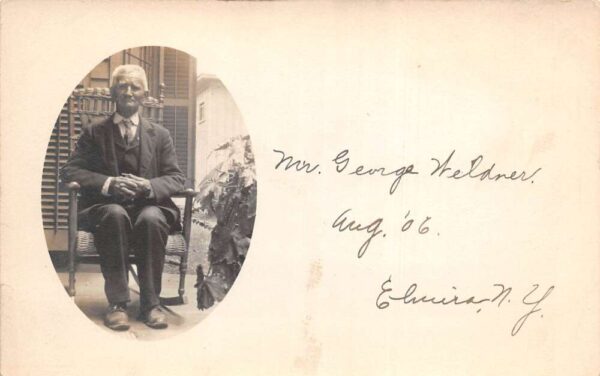 Mr. George Weldner.
Aug. '06.
Elmira, N.Y.